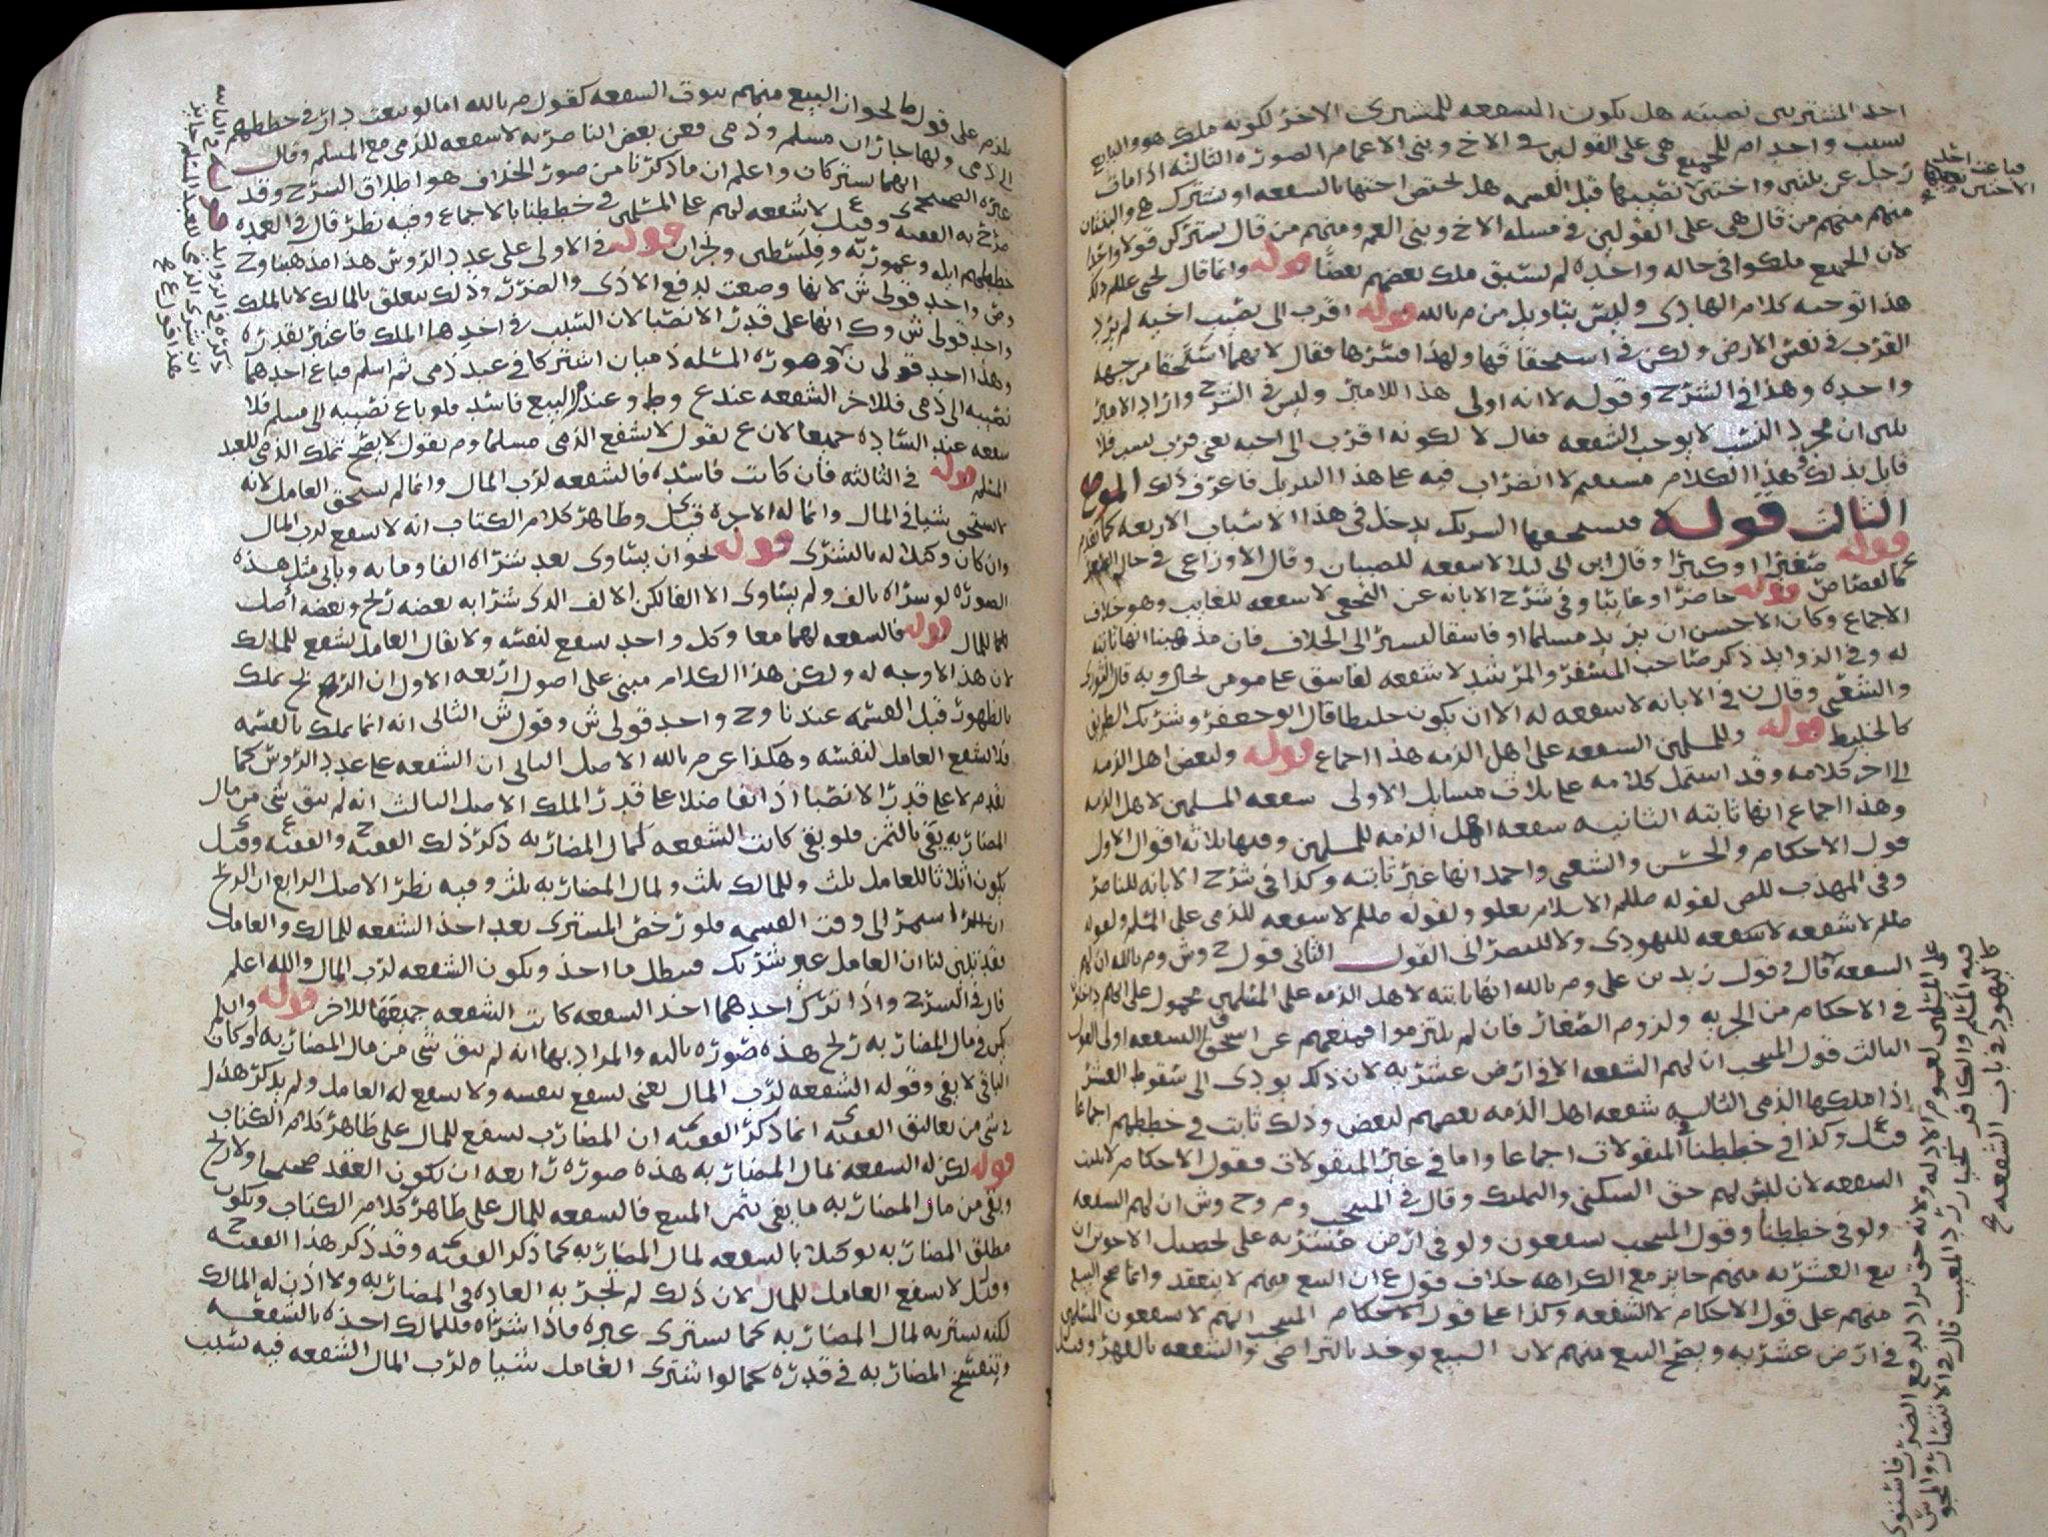 احد المشتريين نصيبه هل يكون الشفعه للمشترى الاخر لكونه ملك هو والبايع
بسبب واحد ام للجميع هى على القولين فى الاخ وبنى الاعمام الصوره الثالثه اذا مات
رجل عن بنتين واختين لا نصيبها قبل القسمه هل تختص اختها بالشفعه او تشترك هى والبنتان
منهم من قال هى على القولين فى مسله الاخ وبنى العم ومنهم من قال يشتركن قولا واحدا
لان الجميع ملكوا فى حاله واحده لم يسبق ملك بعضهم بعضا قوله وانما قال يحيى عللم ذلك
هذا توجيه كلام الهادى وليس بتاويل من م بالله قوله اقرب الى نصيب اخيه لم يرد
القرب فى نفس الارض ولكن فى استحقاقها ولهذا فسرها فقال لانهما استحقا من جهه
واحده وهذا فى الشرح وقوله لانه اولى هذا للامير وليس فى الشرح واراد الامير
يبين ان مجرد النسب لا يوجب الشفعه فقال لا لكونه اقرب الى اخيه يعنى قرب نسب فلا
قايل بذلك فى هذا الكلام مستقيم لا اضراب فيه على هذا التنزيل فاعرف ذلك الموضع
الثالث قوله فيستحقها الشريك يدخل فى هذا الاسباب الاربعه كما تقدم
قوله صغيرا او كبيرا وقال ابن ابى ليلا لا شفعه للصبيان وقال الاوزاعى فى حال الصغر
كالقصاص قوله حاضرا او غايبا وفى شرح الابانه عن النخعى لا شفعه للغايب وهو خلاف
الاجماع وكان الاحسن ان يزيد مسلما او فاسقا ليسير الى الخلاف فان مذهبنا انها ثابته
له وفى الزوايد ذكر صاحب المسفر والمرشد لا شفعه لفاسق على مومن بحال وبه قال الثورى
والشعبى وقال ن فى الابانه لا شفعه له الا ان يكون خليطا قال ابو جعفر وشريك الطريق
كالخليط قوله وللمسلمين الشفعه على اهل الذمه هذا اجماع قوله ولبعض اهل الذمه
الى اخر كلامه وقد اشتمل كلامه على ثلاث مسايل الاولى شفعه المسلمين لاهل الذمه
وهذا اجماع انها ثابته الثانيه شفعه اهل الذمه للمسلمين وفيها ثلاثه اقوال الاول
قول الاحكام والحسن والشعبى واحمد انها غير ثابته وكذا فى شرح الابانه للناصر
وفى المهذب للص لقوله صللم الاسلام يعلو ولقوله صللم لا شفعه للذمى على المسلم ولقوله
صللم لا شفعه لا شفعه لليهودى ولا للنصرانى القول الثانى قول ح وش وم بالله ان لهم
الشفعه قال فى وقول زيد بن على وم بالله انها ثابته لاهل الذمه على المسلمين محمول على انهم داخلون
فى الاحكام من الجزيه ولزوم الصغار فان لم يلتزموا فمنعهم عن استحقاق الشفعه اولى القول
الثالث قول المنتخب ان لهم الشفعه الا فى ارض عشريه لان ذلك يودى الى سقوط العشر
اذا ملكها الذمى الثالثه شفعه اهل الذمه بعضهم لبعض وذلك ثابت فى خططهم اجماعا
قيل وكذا فى خططنا فى المنقولات اجماعا واما فى غير المنقولات فقول الاحكام لا يثبت
الشفعه لان ليس لهم حق السكنى والتملك وقال فى المنتخب وم وح وش ان لهم الشفعه
ولو فى خططنا وقول المنتخب يشفعون ولو فى ارض عشريه على تحصيل الاخوين ان
بيع العشريه منهم جايز مع الكراهه خلاف قول ع ان البيع منهم لا ينعقد وانما صح البيع
منهم على قول الاحكام لا الشفعه وكذا على قول الاحكام المنتخب انهم لا يشفعون المسلمين
فى ارض عشريه ويصح البيع منهم لان البيع يوخذ بالتراضى والشفعه بالقهر وقيل
فباعت احدى
الاختين نصيبها
على المسلمين لعموم الادله ولانه حق يراد لدفع الضرر فاستوى
فيه المسلم والكافر كخيار رد المعيب قال فى الانتصار والمش
كاليهود فى باب الشفعه
يلزم على قول ط لجواز البيع منهم ثبوت الشفعه كقول م بالله اما لو بيعت دار فى خططهم
الى ذمى ولها جاران مسلم وذمى فعن بعض الناصريه لا شفعه للذمى مع المسلم وقال
غيره الصحيح انهما يشتركان واعلم ان ما ذكرنا من صور الخلاف هو اطلاق الشرح وقد
صرح به الفقيه وقيل لا شفعه لهم على المسلمين فى خططنا بالاجماع وفيه نظر قال فى العمده
خططهم ايله وعموريه وفلسطين ونجران قوله فى الاولى على عدد الرووس هذا مذهبنا وح
وص واحد قولى ش لانها وضعت لدفع الاذى والضرر وذلك يتعلق بالمالك لا بالملك
واحد قولى ش وك انها على قدر الانصبا لان السبب فى اخذها الملك فاعتبر بقدره
وهذا احد قولى ن وصوره المسله ذميان اشتركا فى عبد ذمى ثم اسلم فباع احدهما
نصيبه الى ذمى فللاخر الشفعه عند ع وط وعند م البيع فاسد فلو باع نصيبه الى مسلم فلا
شفعه عند الساده جميعا لان ع يقول لا يشفع الذمى مسلما وم يقول لا يصح تملك الذمى للعبد
المسلم قوله فى الثالثه فان كانت فاسده فالشفعه لرب المال وانما لم يستحق العامل لانه
لا يستحق شيا فى المال وانما له الاجره قيل وظاهر كلام الكتاب انه لا يشفع لرب المال
وان كان وكيلا له بالشرى قوله نحو ان يساوى بعد شراه الفا ومايه وياتى مثل هذه
الصوره لو شراه بالف ولم يساوى الا الفا لكن الالف الذى شرا به بعضه ربح وبعضه اصل
للمال قوله فالشفعه لهما معا وكل واحد يشفع لنفسه ولا يقال العامل يشفع للمالك
لان هذا لا وجه له ولكن هذا الكلام مبنى على اصول اربعه الاول ان الربح يملك
بالظهور قبل القسمه عندنا وح واحد قولى ش وقول ش الثانى انه انما يملك بالقسمه
فلا يشفع العامل لنفسه وهكذا عن م بالله الاصل الثانى ان الشفعه على عدد الرووس كما
تقدم لا على قدر الانصبا اذا لفا ضلا على قدر الملك الاصل الثالث انه لم يبق شى من مال
المضاربه يفى بالثمن فلو بقى كانت الشفعه لمال المضاربه ذكر ذلك الفقيه والفقيه وقيل
يكون اثلاثا للعامل ثلث وللمالك ثلث ولمال المضاربه ثلث وفيه نظر الاصل الرابع ان الربح
استمر الى وقت القسمه فلو رخص المشترى بعد اخذ الشفعه للمالك والعامل
فقد تبين لنا ان العامل غير شريك فيبطل ما اخذ ويكون الشفعه لرب المال والله اعلم
قال فى الشرح واذا ترك احدهما اخذ الشفعه كانت الشفعه جميعها للاخر قوله وان لم
يكن فى مال المضاربه ربح هذه صوره ثالثه والمراد بها انه لم يبق شى من مال المضاربه او كان
الباقى لا يفى وقوله الشفعه لرب المال يعنى يشفع لنفسه ولا يشفع له العامل ولم يذكر هذا
فى شى من تعاليق الفقيه انما ذكر الفقيه ان المضارب يشفع للمال على ظاهر كلام الكتاب
قوله لكن له الشفعه لمال المضاربه هذه صوره رابعه ان يكون العقد صحيحا ولا ربح
وبقى من مال المضاربه ما يفى بثمن المبيع فالشفعه للمال على ظاهر كلام الكتاب ويكون
مطلق المضاربه توكيلا بالشفعه لمال المضاربه كما ذكر الفقيه وقد ذكر هذا الفقيه
وقيل لا يشفع العامل للمال لان ذلك لم تجر به العاده فى المضاربه ولا اذن له المالك
لكنه يشتريه لمال المضاربه كما يشترى غيره فاذا شراه فللمالك اخذه بالشفعه
وتنفسخ المضاربه فى قدره كما لو اشترى العامل شيا لرب المال الشفعه فيه بسبب
ذكره فى الزوايد
ان شرى الذمى للعبد المسلم جايز